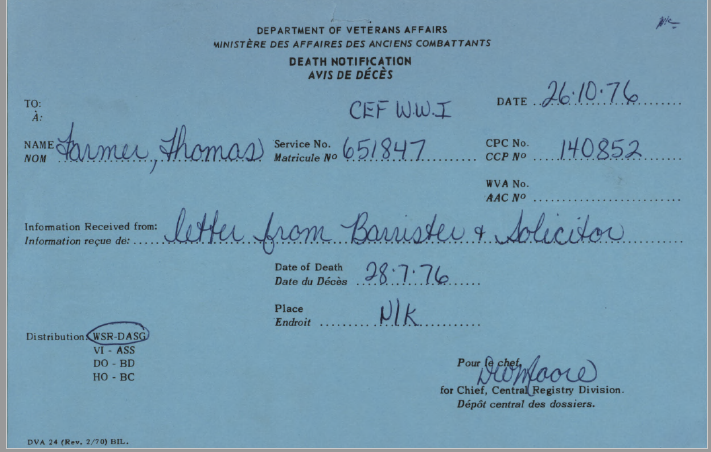 DEPARTMENT OF VETERANS AFFAIRS
MINISTÈRE DES AFFAIRES DES ANCIENS COMBATTANTS
DEATH NOTIFICATION
AVIS DE DÉCÈS
TO:
À:
CEF W.W.I
DATE 26.10.76
NAME
NOM Farmer, Thomas
Service No.
Matricule Nº 651847
CPC No.
CCP Nº 140852
WVA No.
AAC Nº
Information Received from:
Information reçue de: letter from Barrister & Solicitor
Date of Death
Date du Décès 28.7.76
Place
Endroit N/K
Distribution: WSR-DASG
VI - ASS
DO - BD
HO - BC
Pour le chef,
for Chief, Central Registry Division.
Dépôt central des dossiers.
DVA 24 (Rev. 2/70) BIL.